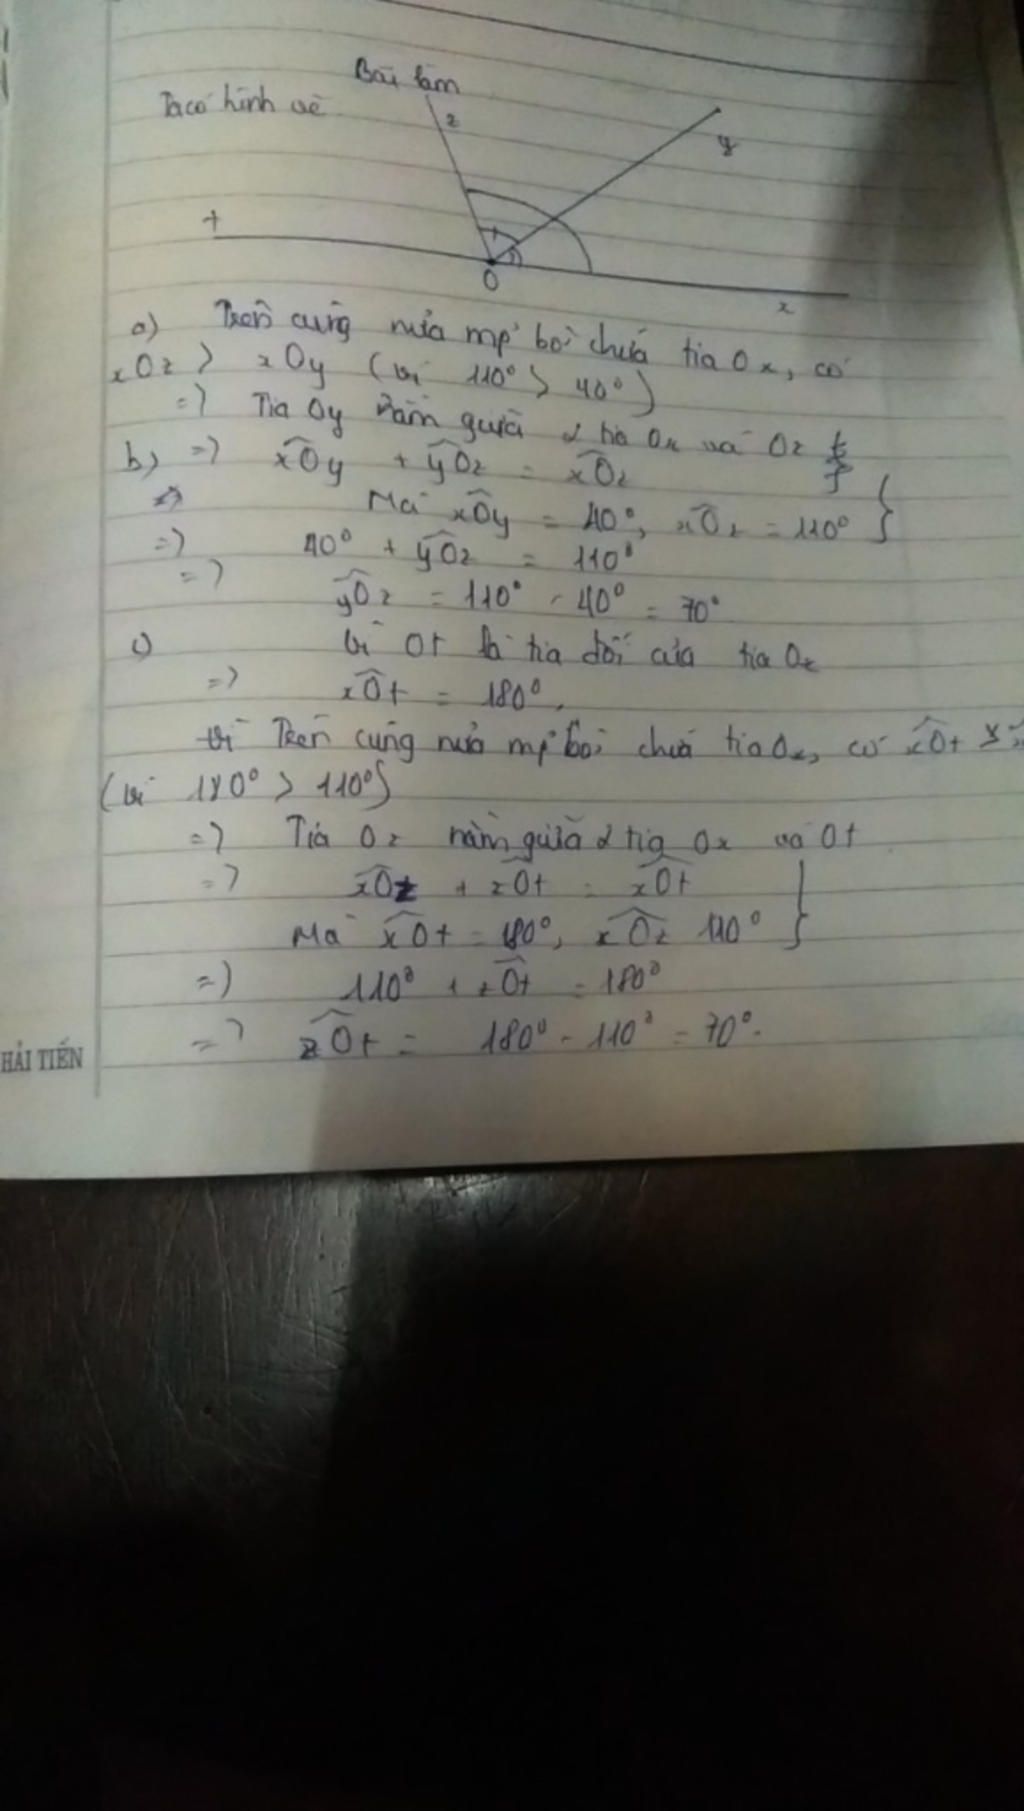 Bài làm
Ta có hình vẽ
z
y
t
O
x
a) Trên cùng nửa mp bờ chứa tia Ox, có
xOz > xOy (vì 110° > 40°)
=> Tia Oy nằm giữa 2 tia Ox và Oz
b) => xOy + yOz = xOz
Mà xOy = 40°, xOz = 110° }
=> 40° + yOz = 110°
=> yOz = 110° - 40° = 70°
c) Vì Ot là tia đối của tia Ox
=> xOt = 180°.
Trên cùng nửa mp bờ chứa tia Ox, có xOt >
(vì 180° > 110°)
=> Tia Oz nằm giữa 2 tia Ox và Ot
=> xOz + zOt = xOt
Mà xOt = 180°, xOz 110° }
=> 110° + zOt = 180°
=> zOt = 180° - 110° = 70°.
HẢI TIẾN